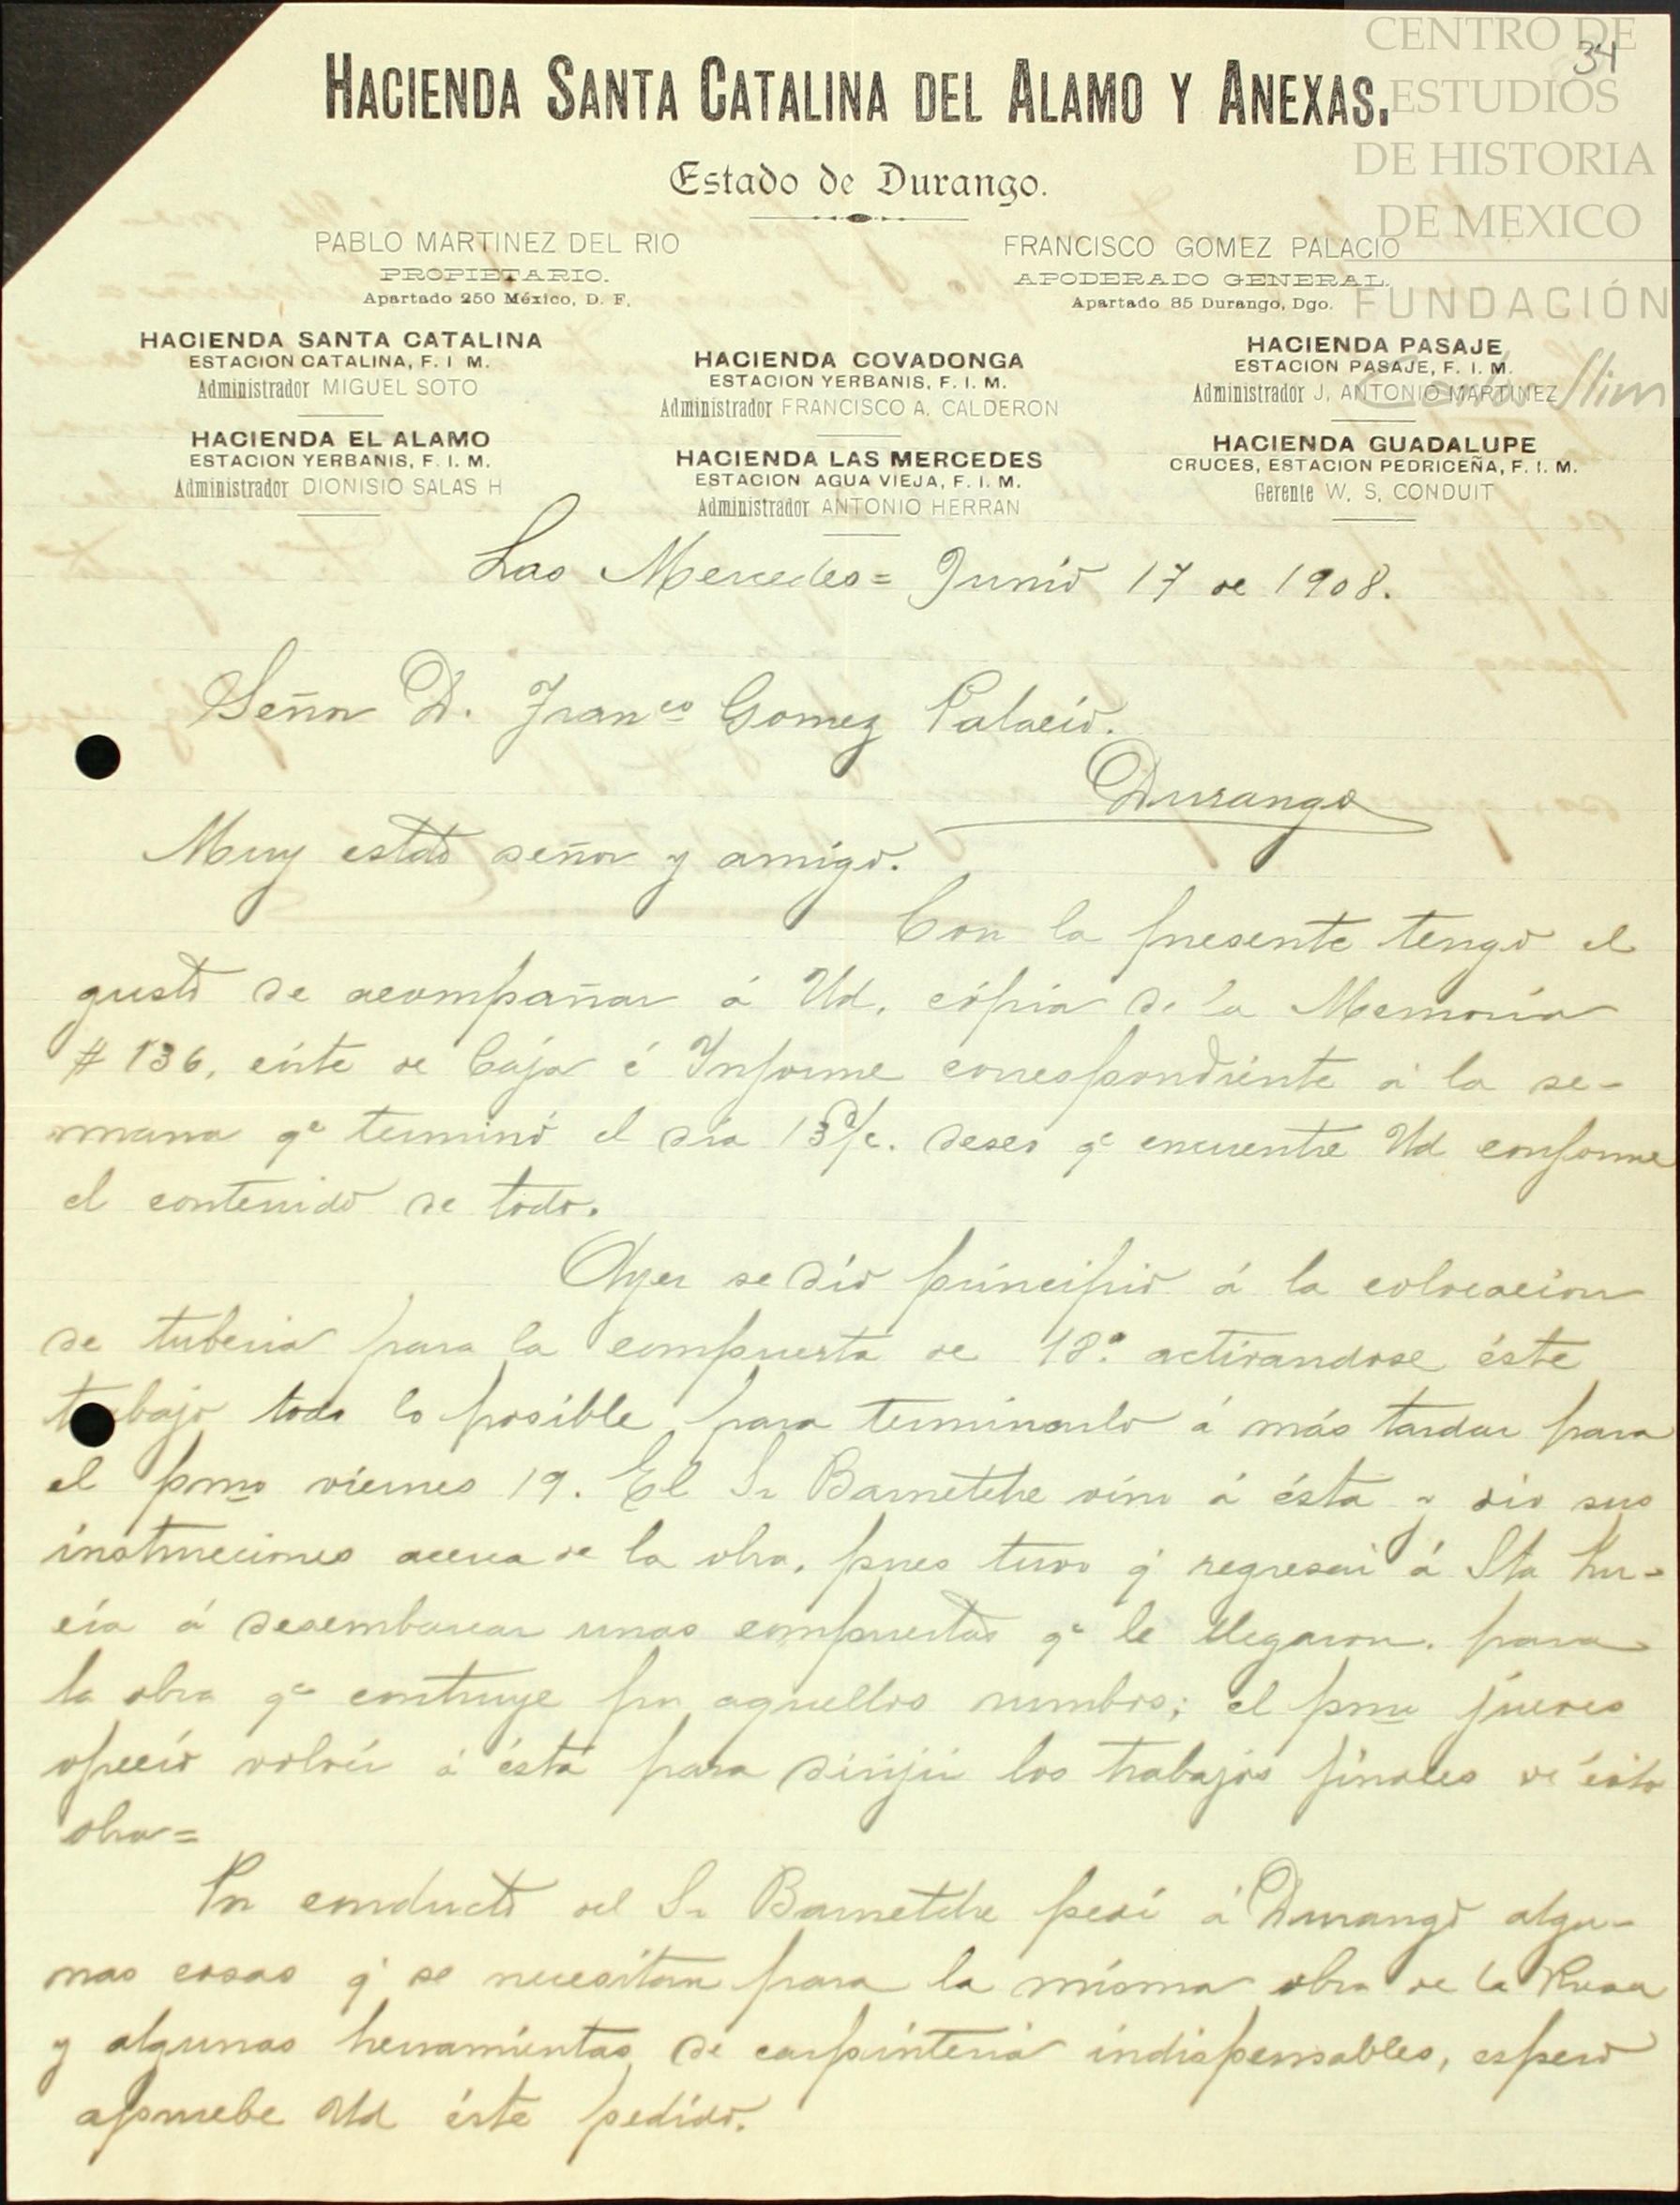 CENTRO DE
ESTUDIOS
DE HISTORIA
DE MEXICO
FUNDACIÓN
Carlos Slim
34
HACIENDA SANTA CATALINA DEL ALAMO Y ANEXAS.
Estado de Durango.
PABLO MARTINEZ DEL RIO
PROPIETARIO.
Apartado 250 México, D. F.
FRANCISCO GOMEZ PALACIO
APODERADO GENERAL.
Apartado 85 Durango, Dgo.
HACIENDA SANTA CATALINA
ESTACION CATALINA, F. I M.
Administrador MIGUEL SOTO
HACIENDA EL ALAMO
ESTACION YERBANIS, F. I. M.
Administrador DIONISIO SALAS H
HACIENDA COVADONGA
ESTACION YERBANIS, F. I. M.
Administrador FRANCISCO A. CALDERON
HACIENDA LAS MERCEDES
ESTACION AGUA VIEJA, F. I. M.
Administrador ANTONIO HERRAN
HACIENDA PASAJE
ESTACION PASAJE, F. I. M.
Administrador J, ANTONIO MARTINEZ
HACIENDA GUADALUPE
CRUCES, ESTACION PEDRICEÑA, F. I. M.
Gerente W. S. CONDUIT
Las Mercedes = Junio 17 de 1908.
Señor D. Franco Gomez Palacio.
Durango
Muy estdo señor y amigo.
Con la presente tengo el
gusto de acompañar á Ud. cópia de la Memoria
# 136, córte de Caja é Informe correspondiente á la se-
mana qe terminó el dia 13 d/c. deseo qe encuentre Ud conforme
el contenido de todo.
Ayer se dió principio á la colocacion
de tuberia para la compuerta de 18" activandose éste
trabajo todo lo posible para terminarlo á más tardar para
el pmo viernes 19. El Sr Barnetche vino á ésta y dio sus
instrucciones acerca de la obra, pues tuvo q' regresar á Sta Lu-
cia á desembarcar unas compuertas qe le llegaron para
la obra qe contruye por aquellos rumbos; el pmo jueves
ofreció volver á ésta para dirijir los trabajos finales de ésta
obra =
Por conducto del Sr Barnetche pedí á Durango algu-
nas cosas q' se necesitan para la misma obra de la Presa
y algunas herramientas de carpinteria indispensables, espero
apruebe Ud éste pedido.